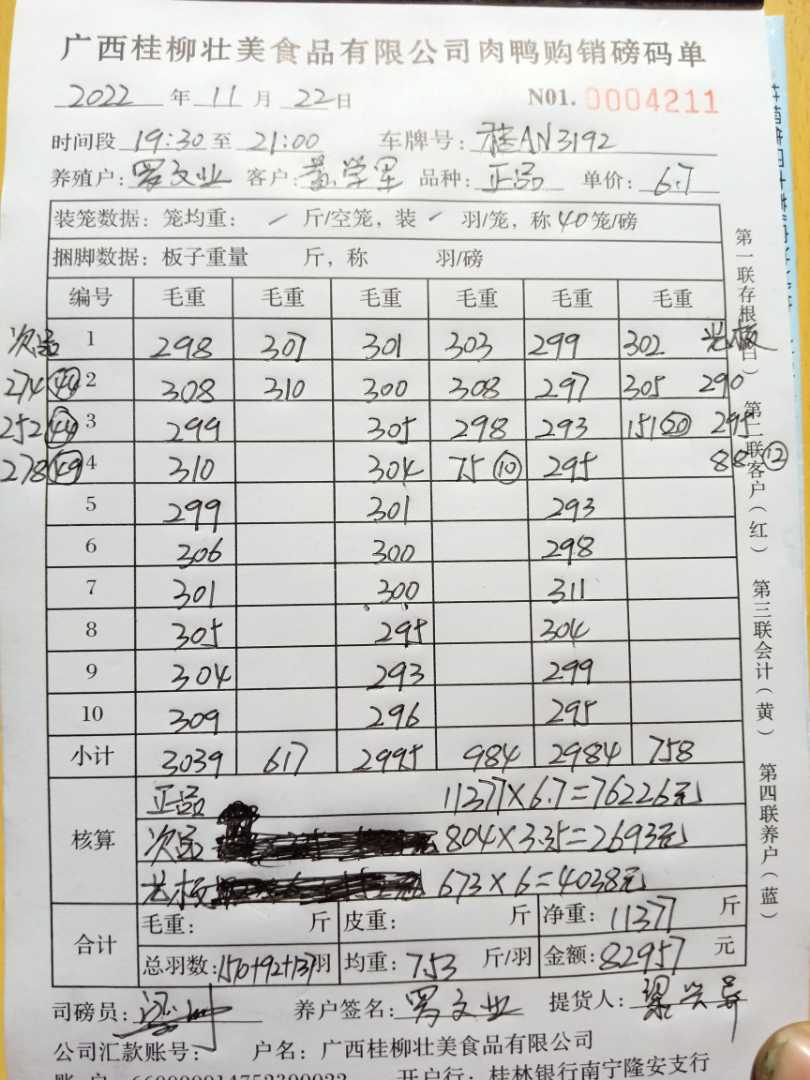 广西桂柳壮美食品有限公司肉鸭购销磅码单
2022 年 11 月 22 日 N01. 0004211
时间段 19:30 至 21:00 车牌号: 桂AN3192
养殖户: 罗文业 客户: 品种: 正品 单价: 6.7
装笼数据: 笼均重: / 斤/空笼, 装 / 羽/笼, 称 40 笼/磅
捆脚数据: 板子重量 斤, 称 羽/磅
编号 毛重 毛重 毛重 毛重 毛重 毛重
次品 1 298 307 301 303 299 302 光板
274 44 2 308 310 300 308 297 305 290
252 44 3 299 305 298 293 151 20 295
278 49 4 310 304 75 10 295 88 12
5 299 301 293
6 306 300 298
7 301 300 311
8 305 295 304
9 304 293 299
10 309 296 295
小计 3039 617 2995 984 2984 758
核算
正品 11377×6.7=76226元
次品 804×3.35=2693元
光板 673×6=4038元
合计
毛重: 斤 皮重: 斤 净重: 11377 斤
总羽数: 1510+92+137 羽 均重: 7.53 斤/羽 金额: 82957 元
司磅员: 养户签名: 罗文业 提货人:
公司汇款账号: 户名: 广西桂柳壮美食品有限公司
开户行: 桂林银行南宁隆安支行
第一联存根(白) 第二联客户(红) 第三联会计(黄) 第四联养户(蓝)